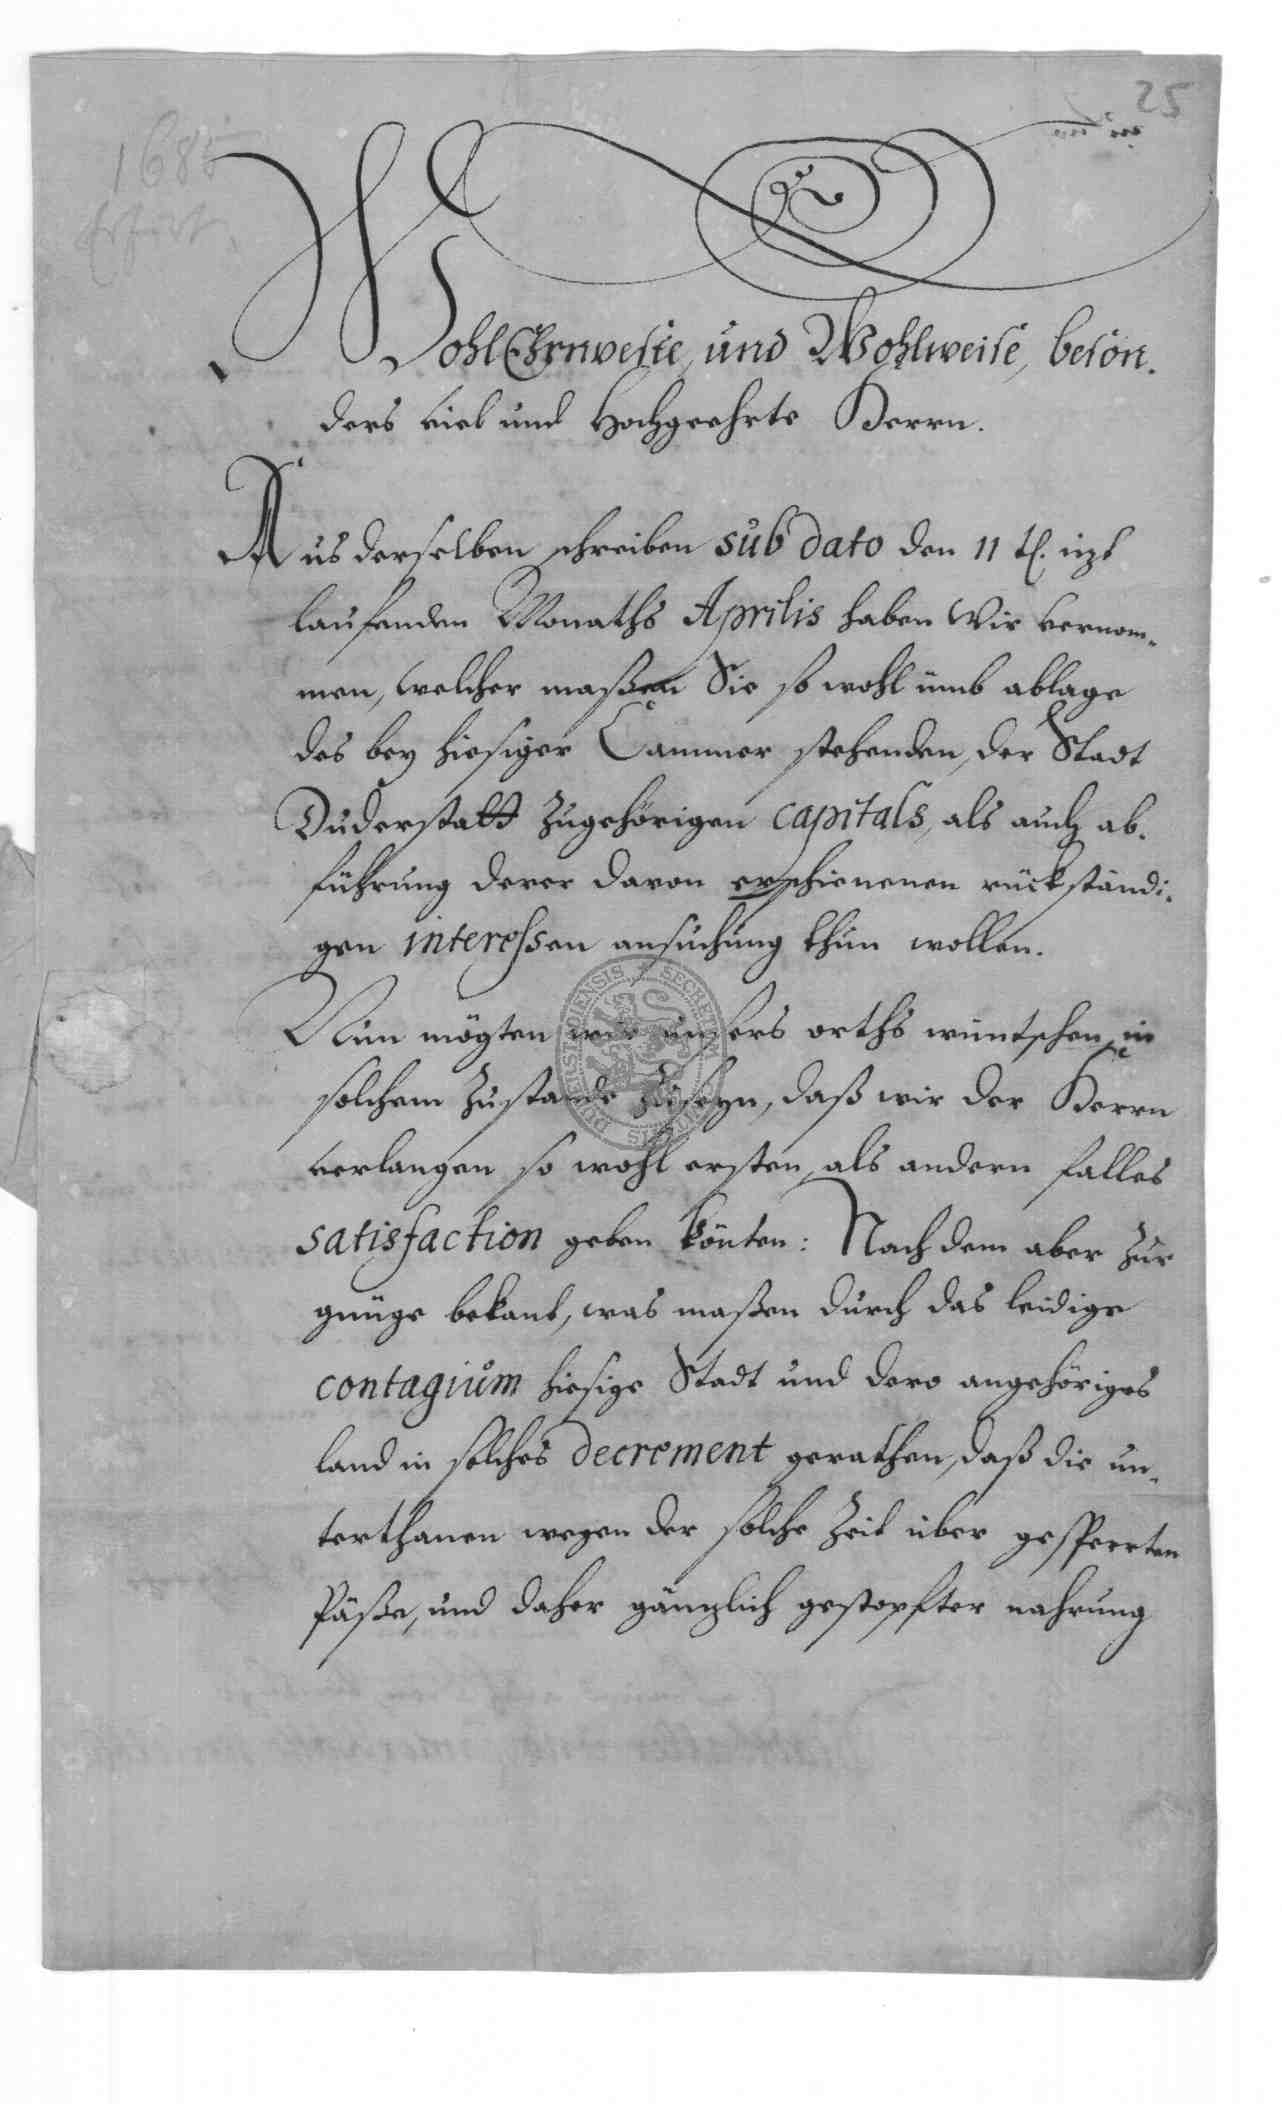 25
1685
Erfurt
WohlEhrnveste, und Wohlweise, beson-
ders viel und Hochgeehrte Herrn.
Aus derselben schreiben sub dato den 11 t. itzt
lauffenden Monaths Aprilis haben Wir vernom-
men, welcher maßen Sie so wohl ümb ablage
des bey hiesiger Cammer stehenden, der Stadt
Duderstatt zugehörigen capitals, als auch ab-
führung derer davon erschienenen rückständi-
gen interessen ansuchung thun wollen.
Nun mögten wir unsers orths wüntschen, in
solchem zustande zuseyn, daß wir der Herrn
verlangen so wohl ersten, als andern falles
satisfaction geben könten: Nach dem aber zur
gnüge bekant, was maßen durch das leidige
contagium hiesige Stadt und dero angehöriges
land in solches decrement gerathen, daß die un-
terthanen wegen der solche Zeit über gesperrten
Päße, und daher gäntzlich gestopfter nahrung